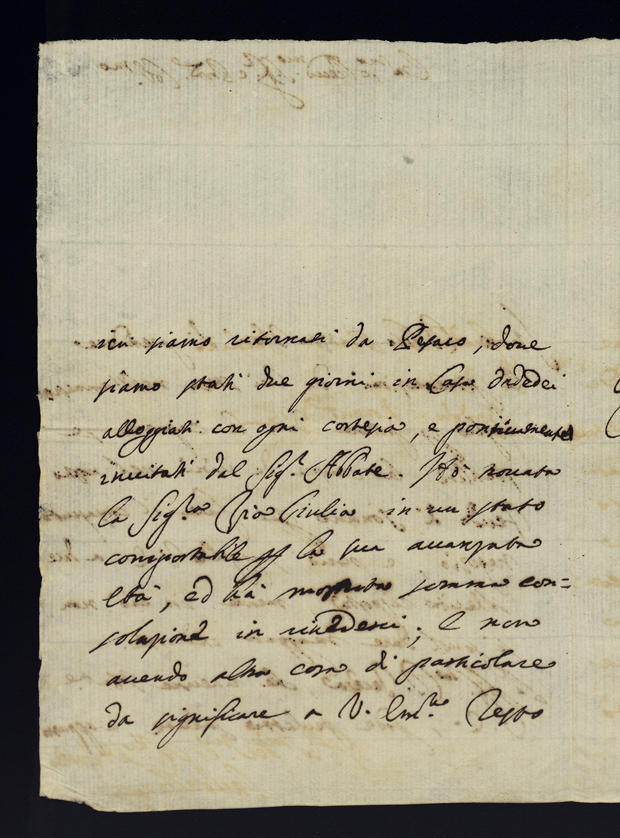 ieri siamo ritornati da Pesaro, dove
siamo stati due giorni in Casa
alloggiati con ogni cortesia, e
invitati dal Sig.r Abbate. Hò trovata
la Sig.ra Zia Giulia in un stato
comportabile per la sua avanzata
età, ed hà mostrata somma con=
solazione in rivederci; e non
avendo altra cosa di particolare
da significare a V. Em.za Resto